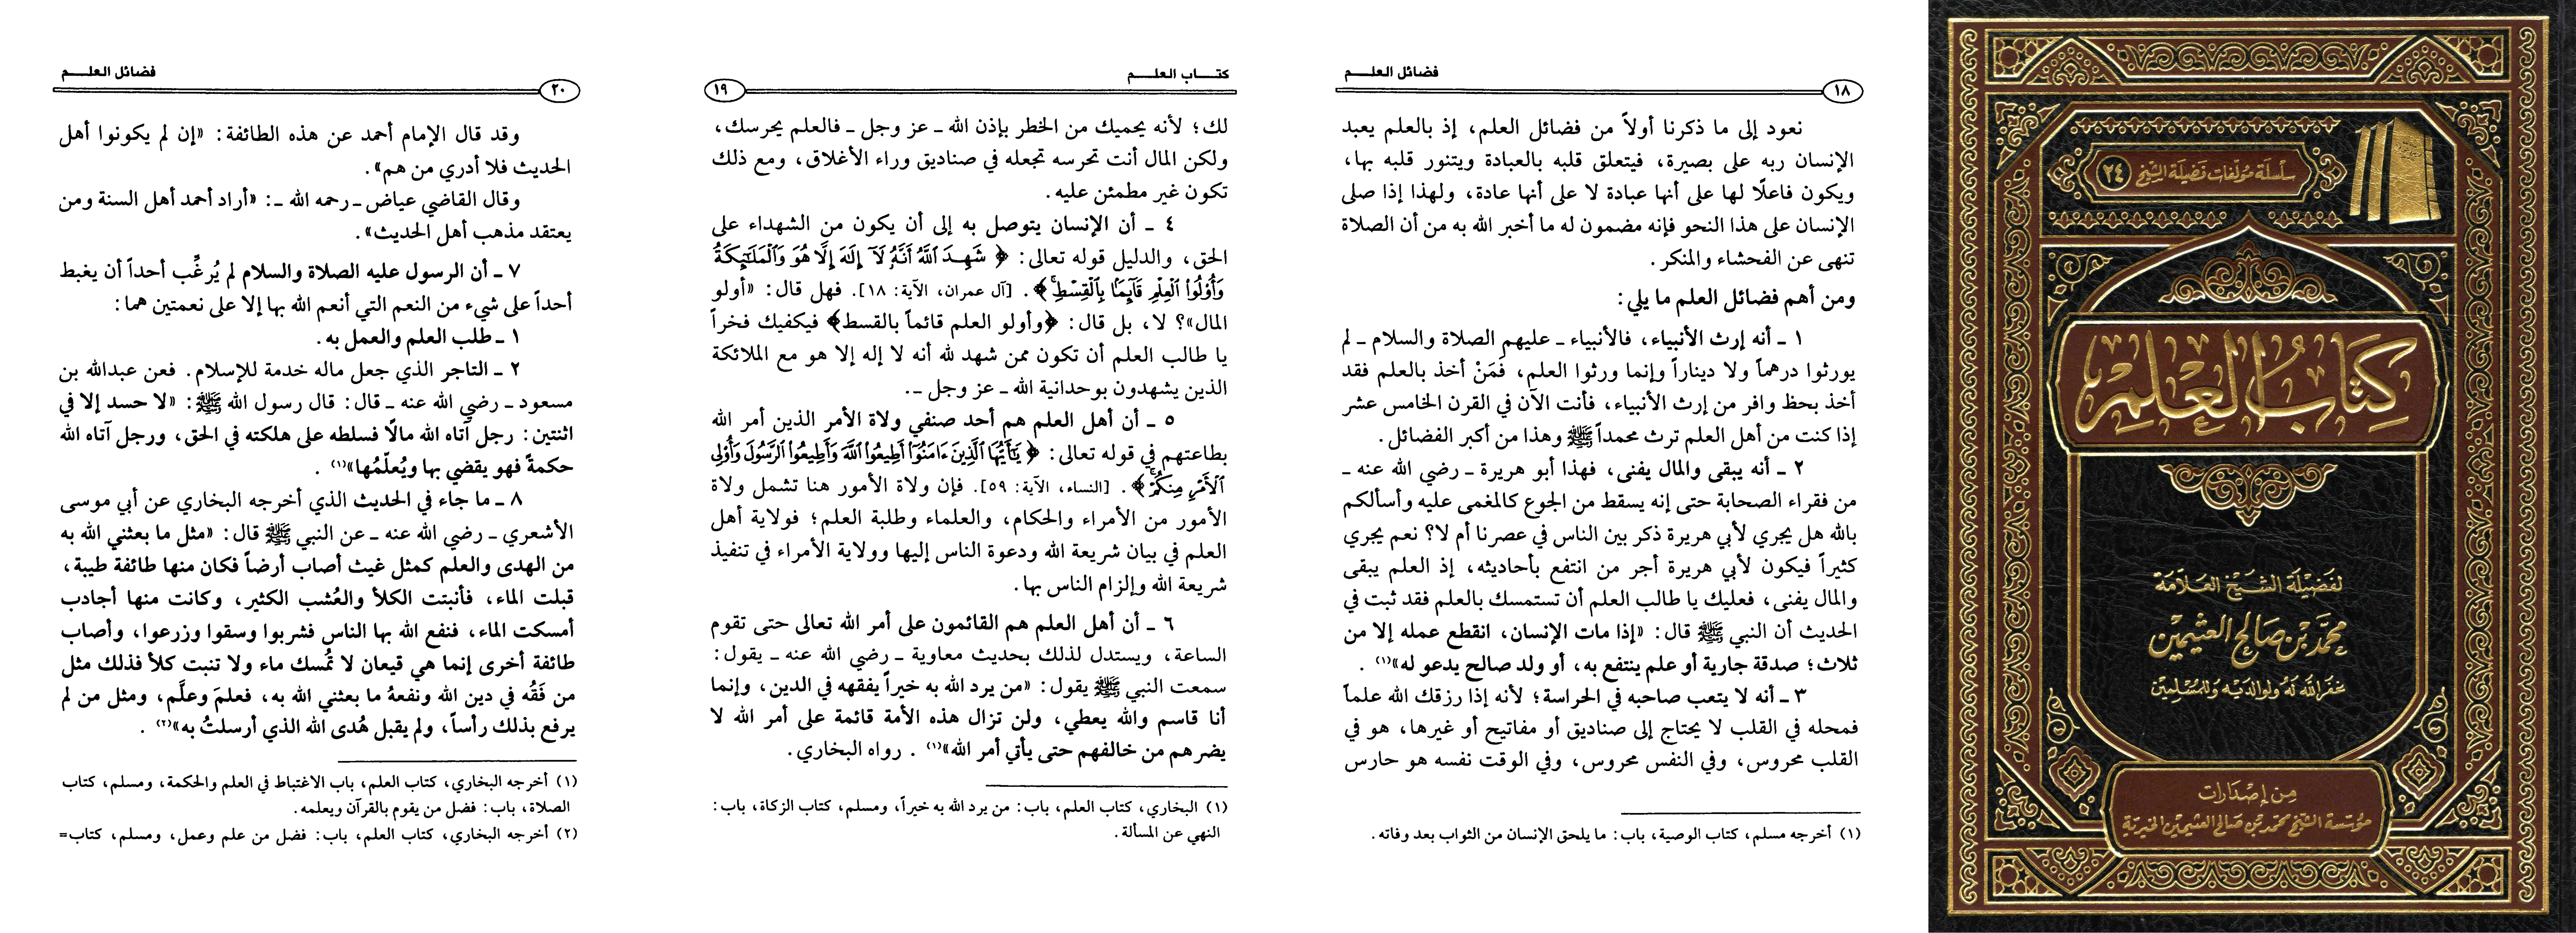 سلسلة مؤلفات فضيلة الشيخ ٢٤
كتاب العلم
لفضيلة الشيخ العلامة
محمد بن صالح العثيمين
غفر الله له ولوالديه وللمسلمين
من إصدارات
مؤسسة الشيخ محمد بن صالح العثيمين الخيرية
فضائل العلم
١٨
نعود إلى ما ذكرنا أولاً من فضائل العلم، إذ بالعلم يعبد
الإنسان ربه على بصيرة، فيتعلق قلبه بالعبادة ويتنور قلبه بها،
ويكون فاعلًا لها على أنها عبادة لا على أنها عادة، ولهذا إذا صلى
الإنسان على هذا النحو فإنه مضمون له ما أخبر الله به من أن الصلاة
تنهى عن الفحشاء والمنكر.
ومن أهم فضائل العلم ما يلي:
١ ـ أنه إرث الأنبياء، فالأنبياء ـ عليهم الصلاة والسلام ـ لم
يورثوا درهماً ولا ديناراً وإنما ورثوا العلم، فَمَنْ أخذ بالعلم فقد
أخذ بحظ وافر من إرث الأنبياء، فأنت الآن في القرن الخامس عشر
إذا كنت من أهل العلم ترث محمداً ﷺ وهذا من أكبر الفضائل.
٢ ـ أنه يبقى والمال يفنى، فهذا أبو هريرة ـ رضي الله عنه ـ
من فقراء الصحابة حتى إنه يسقط من الجوع كالمغمى عليه وأسألكم
بالله هل يجري لأبي هريرة ذكر بين الناس في عصرنا أم لا؟ نعم يجري
كثيراً فيكون لأبي هريرة أجر من انتفع بأحاديثه، إذ العلم يبقى
والمال يفنى، فعليك يا طالب العلم أن تستمسك بالعلم فقد ثبت في
الحديث أن النبي ﷺ قال: «إذا مات الإنسان، انقطع عمله إلا من
ثلاث؛ صدقة جارية أو علم ينتفع به، أو ولد صالح يدعو له»(١).
٣ ـ أنه لا يتعب صاحبه في الحراسة؛ لأنه إذا رزقك الله علماً
فمحله في القلب لا يحتاج إلى صناديق أو مفاتيح أو غيرها، هو في
القلب محروس، وفي النفس محروس، وفي الوقت نفسه هو حارس
(١) أخرجه مسلم، كتاب الوصية، باب: ما يلحق الإنسان من الثواب بعد وفاته.
كتاب العلم
١٩
لك؛ لأنه يحميك من الخطر بإذن الله ـ عز وجل ـ فالعلم يحرسك،
ولكن المال أنت تحرسه تجعله في صناديق وراء الأغلاق، ومع ذلك
تكون غير مطمئن عليه.
٤ ـ أن الإنسان يتوصل به إلى أن يكون من الشهداء على
الحق، والدليل قوله تعالى: ﴿ شَهِدَ ٱللَّهُ أَنَّهُۥ لَآ إِلَٰهَ إِلَّا هُوَ وَٱلْمَلَٰٓئِكَةُ
وَأُو۟لُوا۟ ٱلْعِلْمِ قَآئِمًۢا بِٱلْقِسْطِۚ ﴾. [آل عمران، الآية: ١٨]. فهل قال: «أولو
المال»؟ لا، بل قال: ﴿وأولو العلم قائماً بالقسط﴾ فيكفيك فخراً
يا طالب العلم أن تكون ممن شهد لله أنه لا إله إلا هو مع الملائكة
الذين يشهدون بوحدانية الله ـ عز وجل ـ.
٥ ـ أن أهل العلم هم أحد صنفي ولاة الأمر الذين أمر الله
بطاعتهم في قوله تعالى: ﴿ يَٰٓأَيُّهَا ٱلَّذِينَ ءَامَنُوٓا۟ أَطِيعُوا۟ ٱللَّهَ وَأَطِيعُوا۟ ٱلرَّسُولَ وَأُو۟لِى
ٱلْأَمْرِ مِنكُمْۖ ﴾. [النساء، الآية: ٥٩]. فإن ولاة الأمور هنا تشمل ولاة
الأمور من الأمراء والحكام، والعلماء وطلبة العلم؛ فولاية أهل
العلم في بيان شريعة الله ودعوة الناس إليها وولاية الأمراء في تنفيذ
شريعة الله وإلزام الناس بها.
٦ ـ أن أهل العلم هم القائمون على أمر الله تعالى حتى تقوم
الساعة، ويستدل لذلك بحديث معاوية ـ رضي الله عنه ـ يقول:
سمعت النبي ﷺ يقول: «من يرد الله به خيراً يفقهه في الدين، وإنما
أنا قاسم والله يعطي، ولن تزال هذه الأمة قائمة على أمر الله لا
يضرهم من خالفهم حتى يأتي أمر الله»(١). رواه البخاري.
(١) البخاري، كتاب العلم، باب: من يرد الله به خيراً، ومسلم، كتاب الزكاة، باب:
النهي عن المسألة.
فضائل العلم
٢٠
وقد قال الإمام أحمد عن هذه الطائفة: «إن لم يكونوا أهل
الحديث فلا أدري من هم».
وقال القاضي عياض ـ رحمه الله ـ: «أراد أحمد أهل السنة ومن
يعتقد مذهب أهل الحديث».
٧ ـ أن الرسول عليه الصلاة والسلام لم يُرغِّب أحداً أن يغبط
أحداً على شيء من النعم التي أنعم الله بها إلا على نعمتين هما:
١ ـ طلب العلم والعمل به.
٢ ـ التاجر الذي جعل ماله خدمة للإسلام. فعن عبدالله بن
مسعود ـ رضي الله عنه ـ قال: قال رسول الله ﷺ: «لا حسد إلا في
اثنتين: رجل آتاه الله مالًا فسلطه على هلكته في الحق، ورجل آتاه الله
حكمةً فهو يقضي بها ويُعلّمُها»(١).
٨ ـ ما جاء في الحديث الذي أخرجه البخاري عن أبي موسى
الأشعري ـ رضي الله عنه ـ عن النبي ﷺ قال: «مثل ما بعثني الله به
من الهدى والعلم كمثل غيث أصاب أرضاً فكان منها طائفة طيبة،
قبلت الماء، فأنبتت الكلأ والعُشب الكثير، وكانت منها أجادب
أمسكت الماء، فنفع الله بها الناس فشربوا وسقوا وزرعوا، وأصاب
طائفة أخرى إنما هي قيعان لا تُمسك ماء ولا تنبت كلأ فذلك مثل
من فَقُه في دين الله ونفعهُ ما بعثني الله به، فعلمَ وعلَّم، ومثل من لم
يرفع بذلك رأساً، ولم يقبل هُدى الله الذي أرسلتُ به»(٢).
(١) أخرجه البخاري، كتاب العلم، باب الاغتباط في العلم والحكمة، ومسلم، كتاب
الصلاة، باب: فضل من يقوم بالقرآن ويعلمه.
(٢) أخرجه البخاري، كتاب العلم، باب: فضل من علم وعمل، ومسلم، كتاب=